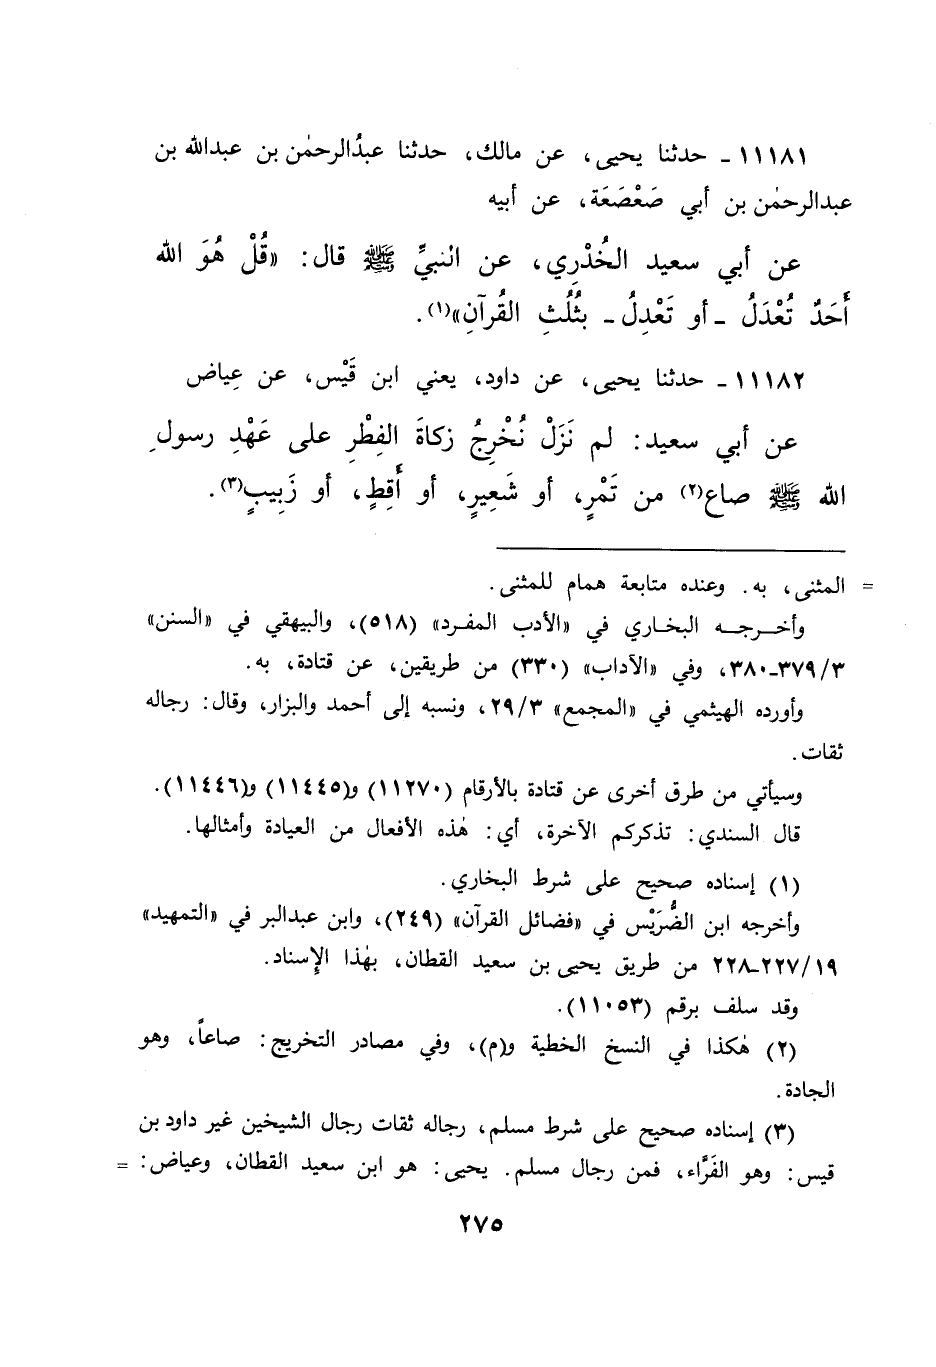 ١١١٨١ ـ حدثنا يحيى، عن مالك، حدثنا عبدُالرحمٰن بن عبدالله بن
عبدالرحمٰن بن أبي صَعْصَعَة، عن أبيه
عن أبي سعيد الخُدْرِي، عن النبيِّ ﷺ قال: «قُلْ هُوَ الله
أَحَدٌ تُعْدَلُ ـ أو تَعْدِلُ ـ بثُلُثِ القُرآنِ»(١).
١١١٨٢ ـ حدثنا يحيى، عن داود، يعني ابن قَيْس، عن عِياض
عن أبي سعيد: لم نَزَلْ نُخْرِجُ زكاةَ الفِطْرِ على عَهْدِ رسولِ
الله ﷺ صاع(٢) من تَمْرٍ، أو شَعِيرٍ، أو أَقِطٍ، أو زَبِيبٍ(٣).
= المثنى، به. وعنده متابعة همام للمثنى.
وأخرجه البخاري في «الأدب المفرد» (٥١٨)، والبيهقي في «السنن»
٣/٣٧٩ـ٣٨٠، وفي «الآداب» (٣٣٠) من طريقين، عن قتادة، به.
وأورده الهيثمي في «المجمع» ٢٩/٣، ونسبه إلى أحمد والبزار، وقال: رجاله
ثقات.
وسيأتي من طرق أخرى عن قتادة بالأرقام (١١٢٧٠) و(١١٤٤٥) و(١١٤٤٦).
قال السندي: تذكركم الآخرة، أي: هٰذه الأفعال من العيادة وأمثالها.
(١) إسناده صحيح على شرط البخاري.
وأخرجه ابن الضُّرَيْس في «فضائل القرآن» (٢٤٩)، وابن عبدالبر في «التمهيد»
١٩/٢٢٧ـ٢٢٨ من طريق يحيى بن سعيد القطان، بهٰذا الإسناد.
وقد سلف برقم (١١٠٥٣).
(٢) هٰكذا في النسخ الخطية و(م)، وفي مصادر التخريج: صاعاً، وهو
الجادة.
(٣) إسناده صحيح على شرط مسلم، رجاله ثقات رجال الشيخين غير داود بن
قيس: وهو الفَرَّاء، فمن رجال مسلم. يحيى: هو ابن سعيد القطان، وعياض: =
٢٧٥